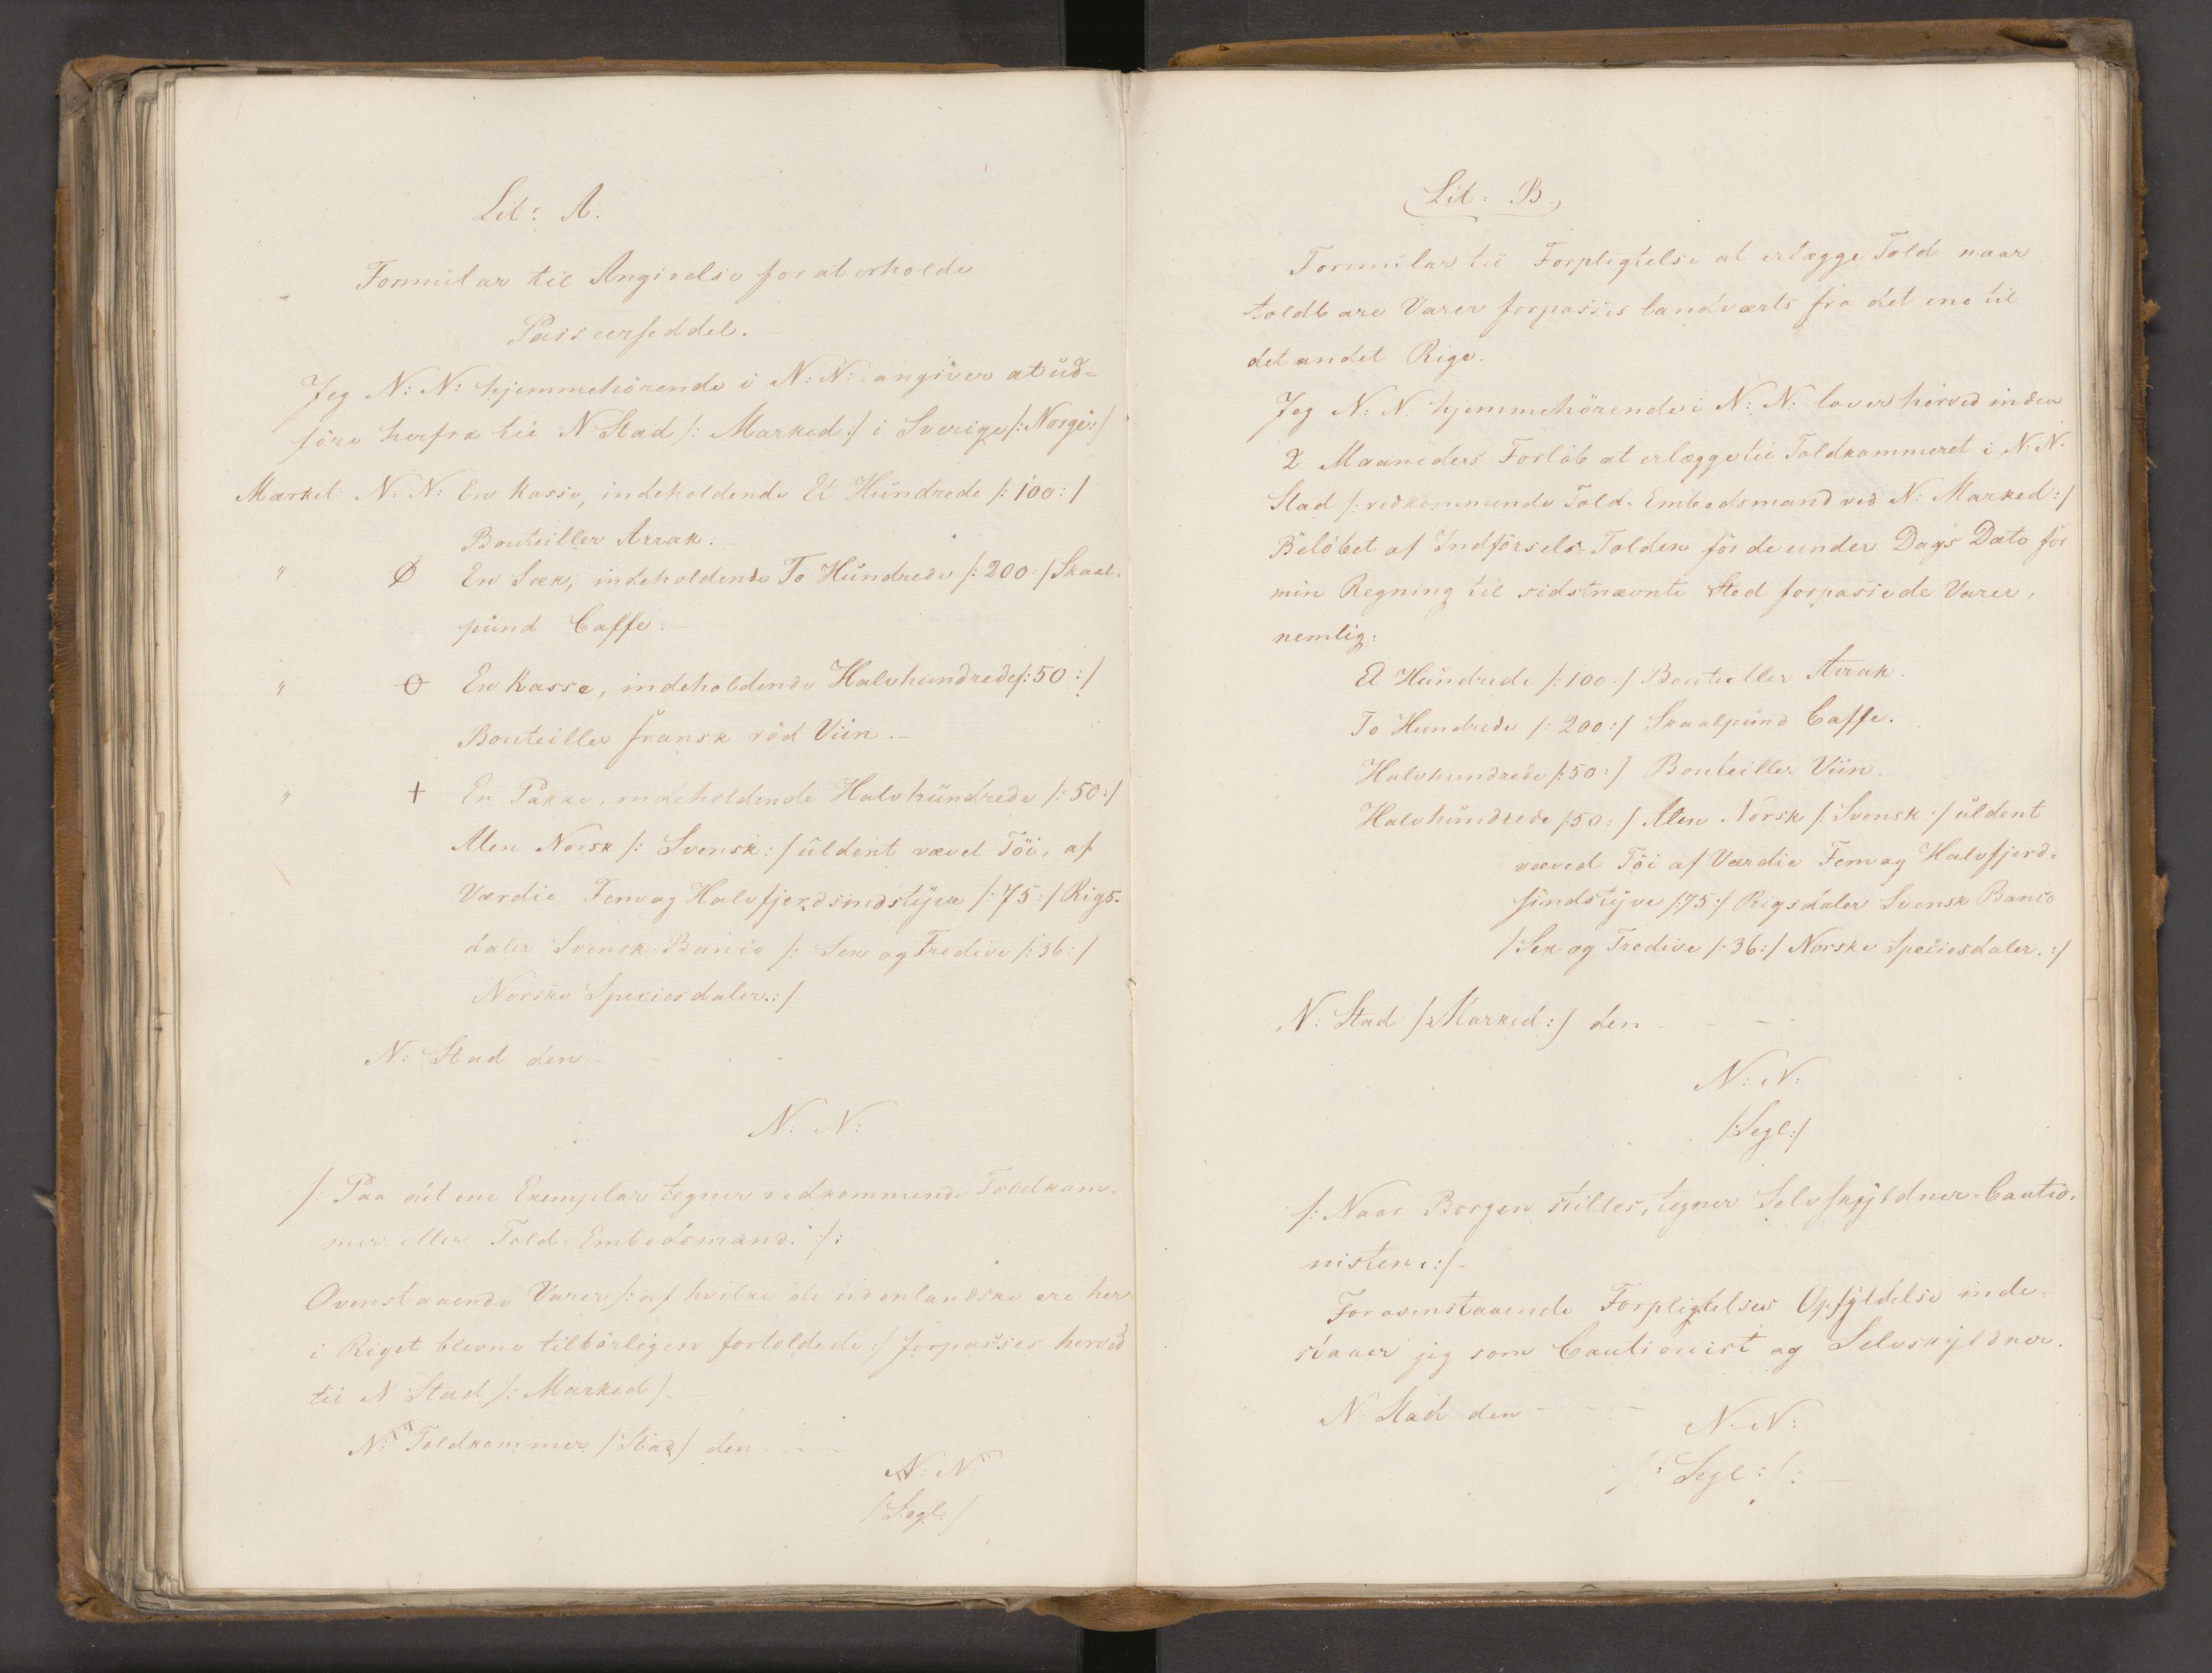 Litr A.
Formular til Angivelse for at erholde
Passeerseddel.
Jeg N: N: hjemmehörende i N: N: angiver at ud=
före herfra til N Stad /: Marked :/ i Sverige /: Norge :/
Mærket N. N: En Kasse, indeholdende Et Hundrede /: 100 :/
Bouteiller Arrak.
" Ø En Sæk, indeholdende To Hundrede /: 200 :/ Skaal-
pund Caffe.
" O En Kasse, indeholdende Halvhundrede /: 50 :/
Bouteiller fransk röd Viin.
" + En Pakke, indeholdende Halvhundrede /: 50 :/
Alen Norsk /: Svensk :/ uldent vævet Töi, af
Værdie Fem og Halvfjerdsindstyve /: 75 :/ Rigs-
daler Svensk Banco /: Sex og Tredive /: 36 :/
Norske Speciesdaler. :/
N: Stad den - - -
N: N:
/: Paa det ene Exemplar tegner vedkommende Toldkam-
mer eller Told-Embedsmand. :/:
Ovenstaaende Varer /: af hvilke de udenlandske ere her
i Riget blevne tilbörligen fortoldede :/ forpasses herved
til N Stad /: Marked /.
N: Toldkammer / Stad / den - - -
N: N:
/ Segl: /
Lit. B.
Formular til Forpligtelse at erlægge Told naar
toldbare Varer forpasses landværts fra det ene til
det andet Rige.
Jeg N: N. hjemmehörende i N: N: lover herved inden
2 Maaneders Forlöb at erlægge til Toldkammeret i N: N.
Stad /: vedkommende Told-Embedsmand ved N: Marked :/
Belöbet af Indförsels-Tolden for de under Dags Dato for
min Regning til sidstnævnte Sted forpassede Varer,
nemlig:
Et Hundrede /: 100 :/ Bouteiller Arrak.
To Hundrede /: 200 :/ Skaalpund Caffe.
Halvhundrede /: 50 :/ Bouteiller Viin.
Halvhundrede /: 50 :/ Alen Norsk /: Svensk :/ uldent
væved Töi af Værdie Fem og Halvfjerd-
sindstyve /: 75 :/ Rigsdaler Svensk Banco
/ Sex og Tredive /: 36 :/ Norske Speciesdaler. :/
N: Stad /: Marked :/ den - - -
N: N:
/: Segl :/
/: Naar Borgen stilles, tegner Selvskyldner-Cautio-
nisten :/-
For ovenstaaende Forpligtelses Opfyldelse inde-
staaer jeg som Cautionist og Selvskyldner.
N. Stad den - - -
N. N:
/: Segl :/: -